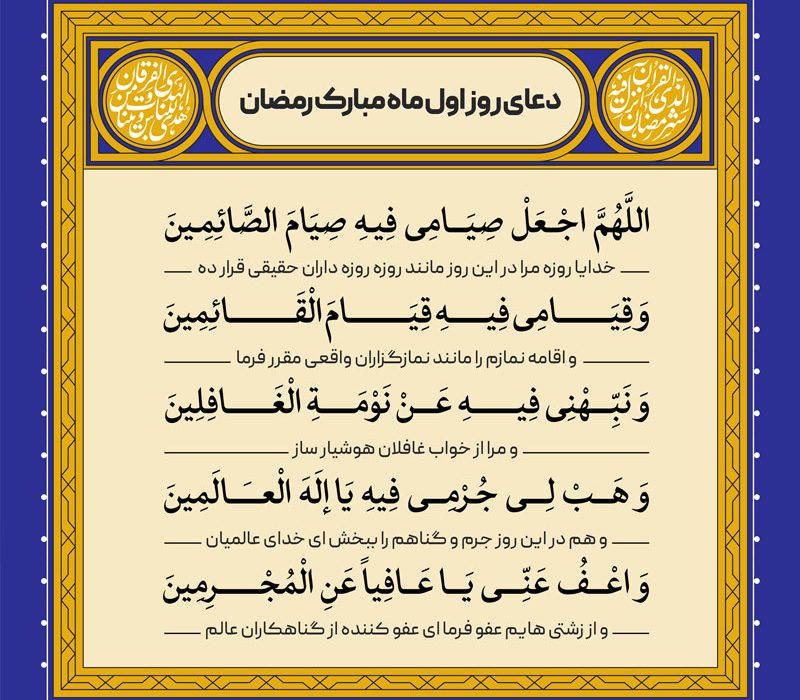 شهر رمضان الذی انزل فیه القرآن
دعای روز اول ماه مبارک رمضان
هدی للناس و بینات من الهدی و الفرقان
اللَّهُمَّ اجْعَلْ صِيَامِی فِيهِ صِيَامَ الصَّائِمِينَ
خدایا روزه مرا در این روز مانند روزه روزه داران حقیقی قرار ده
وَ قِيَامِی فِيهِ قِيَامَ الْقَائِمِينَ
و اقامه نمازم را مانند نمازگزاران واقعی مقرر فرما
وَ نَبِّهْنِی فِيهِ عَنْ نَوْمَةِ الْغَافِلِينَ
و مرا از خواب غافلان هوشیار ساز
وَ هَبْ لِی جُرْمِی فِيهِ يَا إِلَهَ الْعَالَمِينَ
و هم در این روز جرم و گناهم را ببخش ای خدای عالمیان
وَ اعْفُ عَنِّی يَا عَافِياً عَنِ الْمُجْرِمِينَ
و از زشتی هایم عفو فرما ای عفو کننده از گناهکاران عالم